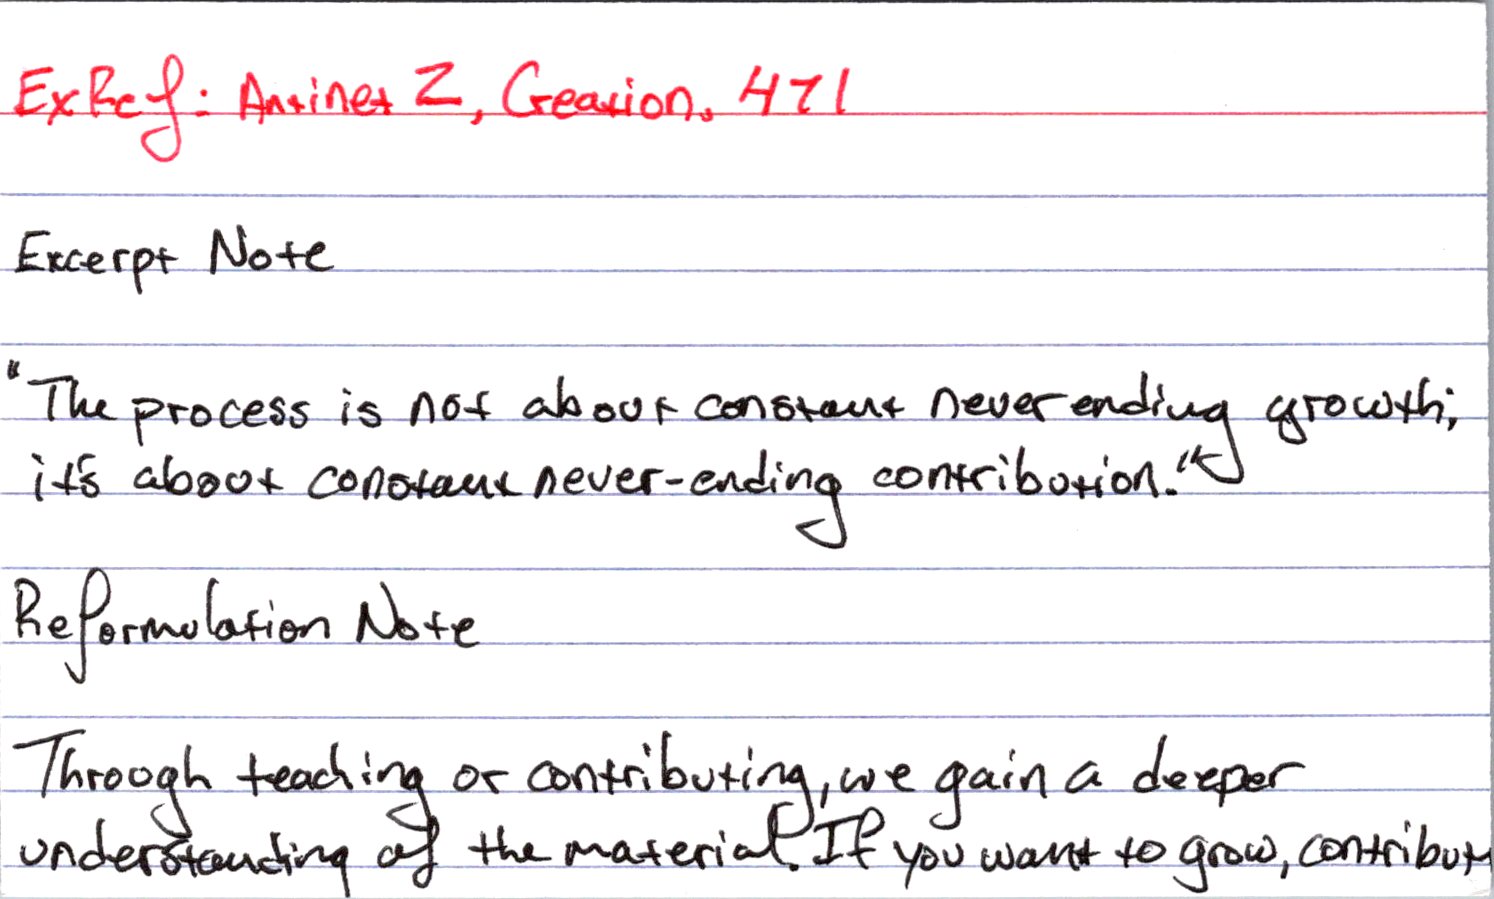 ExRef: Antinet Z, Creation. 471
Excerpt Note
"The process is not about constant never ending growth;
it's about constant never-ending contribution."
Reformulation Note
Through teaching or contributing, we gain a deeper
understanding of the material. If you want to grow, contribut